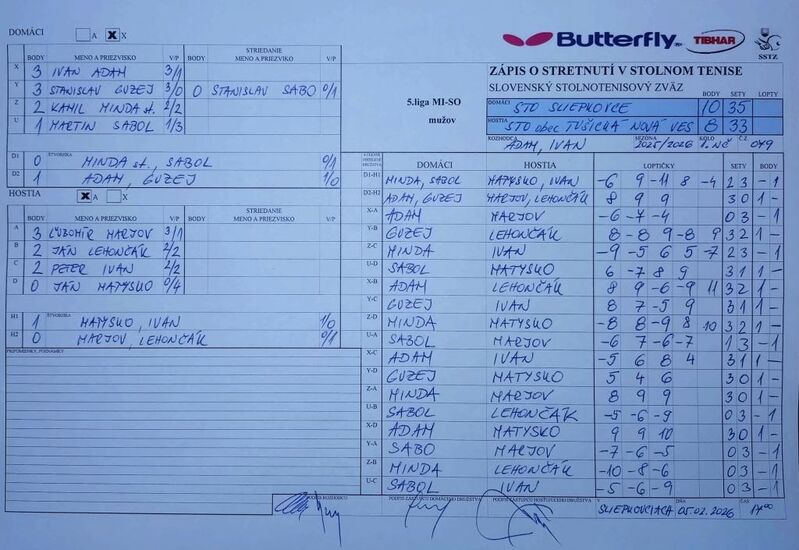 DOMÁCI A X X
Butterfly TIBHAR SSTZ
BODY MENO A PRIEZVISKO V/P BODY STRIEDANIE MENO A PRIEZVISKO V/P
X 3 IVAN ADAM 3/1
Y 3 STANISLAV GUZEJ 3/0 0 STANISLAV SABO 0/1
Z 2 KAMIL MINDA st. 2/2
U 1 MARTIN SABOL 1/3
D1 0 ŠTVORHRA MINDA st., SABOL 0/1
D2 1 ADAM, GUZEJ 1/0
HOSTIA X A X
BODY MENO A PRIEZVISKO V/P BODY STRIEDANIE MENO A PRIEZVISKO V/P
A 3 ĽUBOMÍR MARJOV 3/1
B 2 JÁN LEHONČÁK 2/2
C 2 PETER IVAN 2/2
D 0 JÁN MATYSKO 0/4
H1 1 ŠTVORHRA MATYSKO, IVAN 1/0
H2 0 MARJOV, LEHONČÁK 0/1
PRIPOMIENKY, POZNÁMKY
ZÁPIS O STRETNUTÍ V STOLNOM TENISE
SLOVENSKÝ STOLNOTENISOVÝ ZVÄZ BODY SETY LOPTY
5.liga MI-SO
mužov
DOMÁCI STO SLIEPKOVCE 10 35
HOSTIA STO obec TUŠICKÁ NOVÁ VES 8 33
ROZHODCA ADAM, IVAN SEZÓNA 2025/2026 KOLO 1.NČ Č. 049
DOMÁCI HOSTIA LOPTIČKY SETY BODY
D1-H1 MINDA, SABOL MATYSKO, IVAN -6 9 -11 8 -4 2 3 - 1
D2-H2 ADAM, GUZEJ MARJOV, LEHONČÁK 8 9 9 3 0 1 -
X-A ADAM MARJOV -6 -7 -4 0 3 - 1
Y-B GUZEJ LEHONČÁK 8 -8 9 -8 9 3 2 1 -
Z-C MINDA IVAN -9 -5 6 5 -7 2 3 - 1
U-D SABOL MATYSKO 6 -7 8 9 3 1 1 -
X-B ADAM LEHONČÁK 8 9 -6 -9 11 3 2 1 -
Y-C GUZEJ IVAN 8 7 -5 9 3 1 1 -
Z-D MINDA MATYSKO -8 8 -9 8 10 3 2 1 -
U-A SABOL MARJOV -6 7 -6 -7 1 3 - 1
X-C ADAM IVAN -5 6 8 4 3 1 1 -
Y-D GUZEJ MATYSKO 5 4 6 3 0 1 -
Z-A MINDA MARJOV 8 9 9 3 0 1 -
U-B SABOL LEHONČÁK -5 -6 -9 0 3 - 1
X-D ADAM MATYSKO 9 9 10 3 0 1 -
Y-A SABO MARJOV -7 -6 -5 0 3 - 1
Z-B MINDA LEHONČÁK -10 -8 -6 0 3 - 1
U-C SABOL IVAN -5 -6 -9 0 3 - 1
PODPIS ROZHODCU PODPIS ZÁSTUPCU DOMÁCEHO DRUŽSTVA PODPIS ZÁSTUPCU HOSŤUJÚCEHO DRUŽSTVA V SLIEPKOVCIACH DŇA 05.02.2026 ČAS 17:00